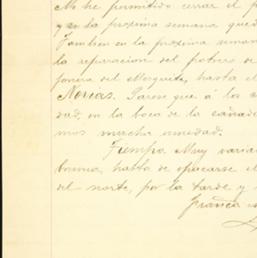 Me he permitido cerrar el p
y en la proxima semana qued
Tambien en la proxima seman
la reparacion del potrero de
jonera del Mezquite, hasta el
Norias. Parece que á la
dad, en la boca de la cañad
mos mucha humedad.
Tiempo. Muy varia
bruma, hasta de opacarse el
del norte, por la tarde y
Franca